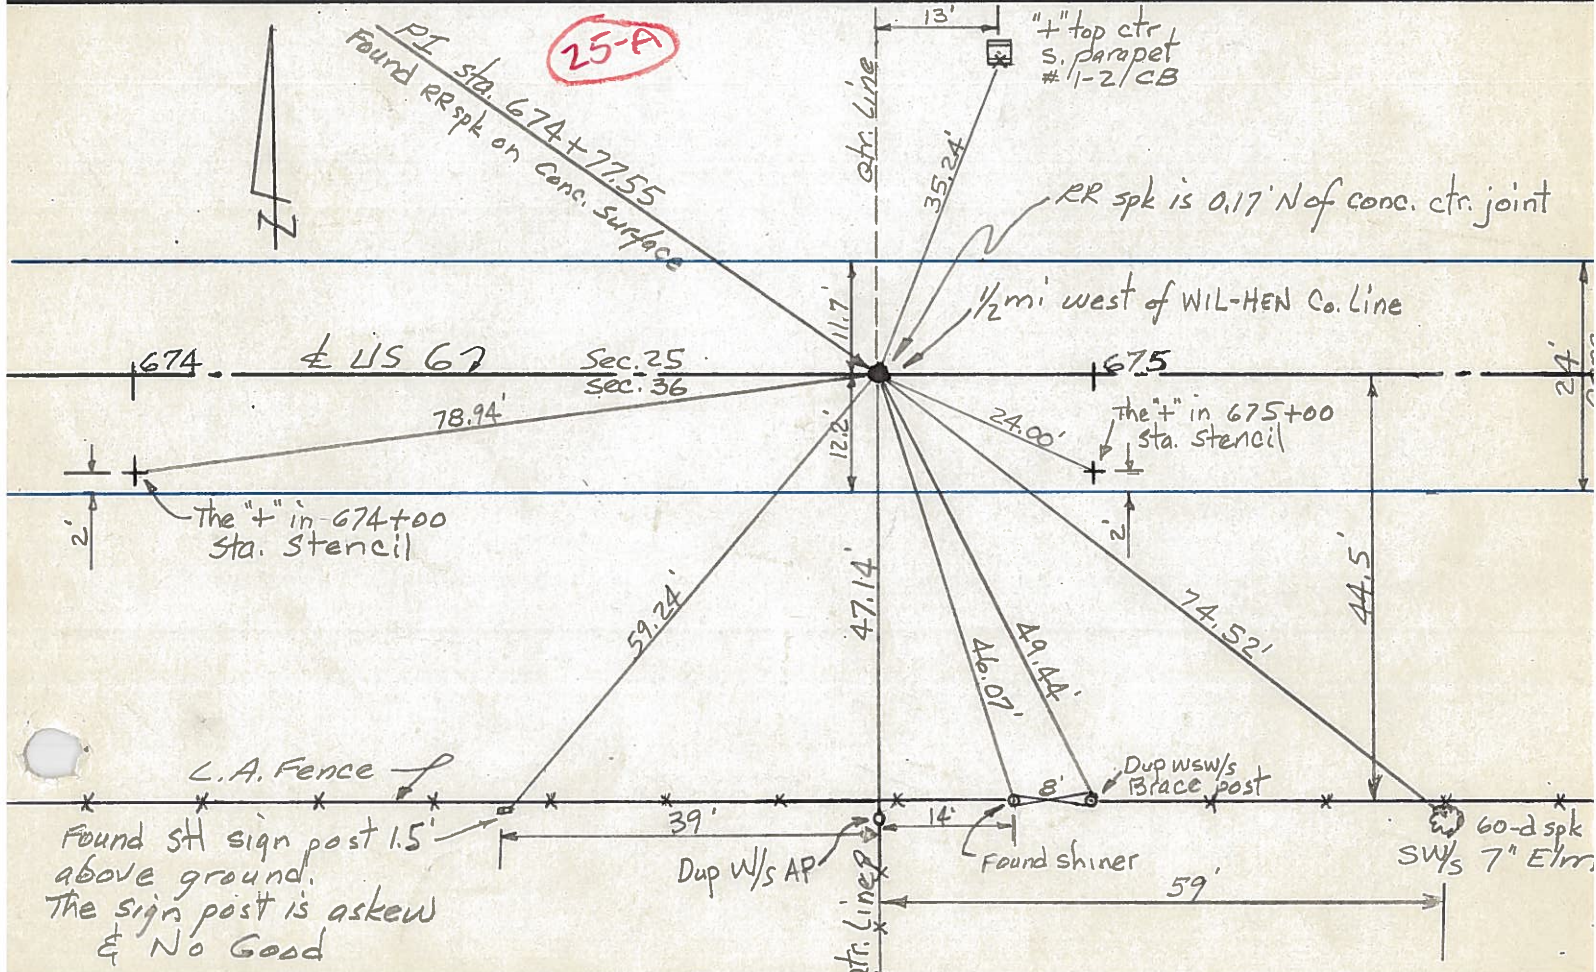 25-A
13'
"+" top ctr
S. parapet
# 1-2/CB
PI sta. 674+77.55
Found RR spk on Conc. Surface
Qtr. Line
35.24'
RR spk is 0.17' N of conc. ctr. joint
N
11.7'
1/2 mi west of WIL-HEN Co. Line
674
℄ US 6
Sec. 25
Sec. 36
675
24'
78.94'
12.2'
24.00'
The "+" in 675+00
Sta. Stencil
2'
The "+" in 674+00
Sta. Stencil
2'
59.24'
47.14'
46.07'
49.44'
74.52'
44.5'
L.A. Fence
8'
Dup WSW/s
Brace post
Found StH sign post 1.5'
above ground.
The sign post is askew
& No Good
39'
14'
Dup W/s AP
Found shiner
60-d spk
SW/s 7" Elm
59'
Qtr. Line